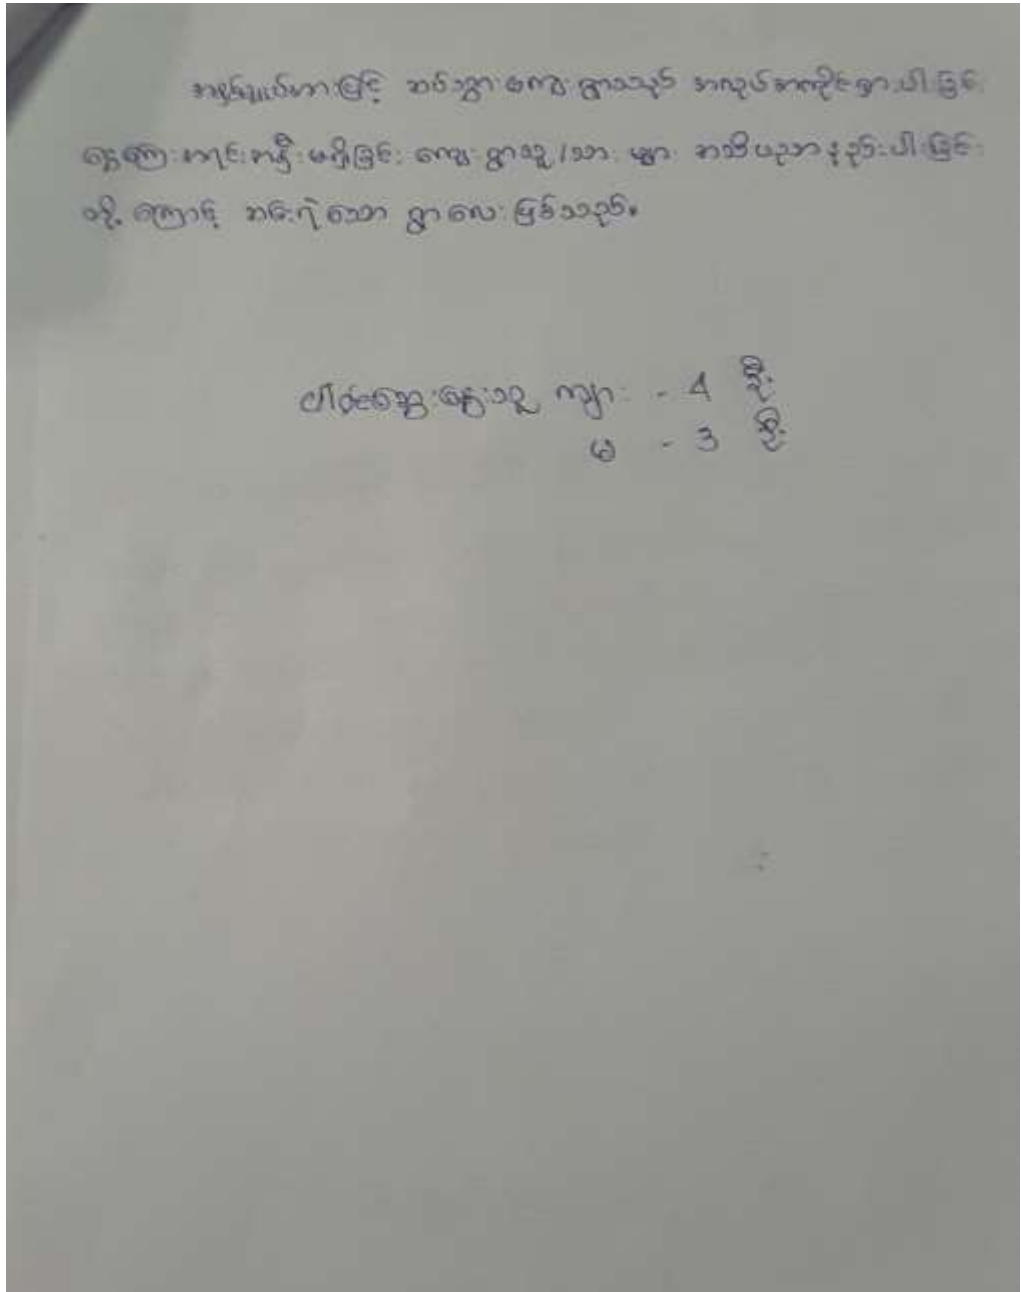 အနှစ်ချုပ်အားဖြင့် ဆစ်သွားကျေးရွာသည် အလုပ်အကိုင်ရှားပါးခြင်း
ချေးငွေ မရှိခြင်း ကျေးရွာသူ/သား များ အသိပညာနည်းပါးခြင်း
တို့ ကြောင့် ဆင်းရဲသော ရွာလေး ဖြစ်သည်။
ပါဝင်ဆွေးနွေးသူ ကျား - 4 ဦး
မ - 3 ဦး